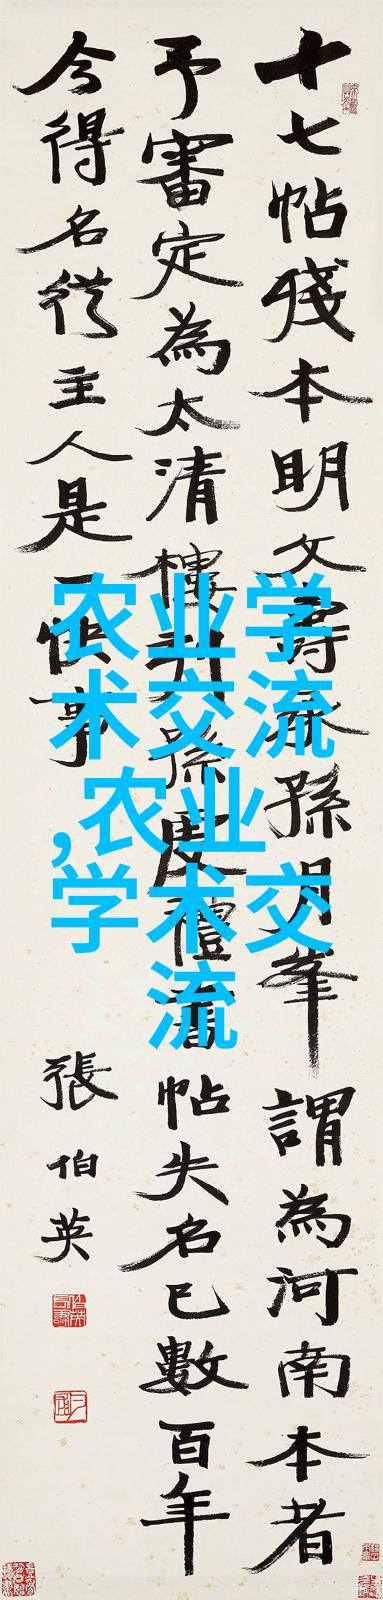 十七帖殘本明文壽承孫月峯謂為河南本者
予審定為太清樓刊孫虔禮書帖失名已數百年
今得名從主人是一快事
張伯英
农业学
术交流
,农业
学术交
流